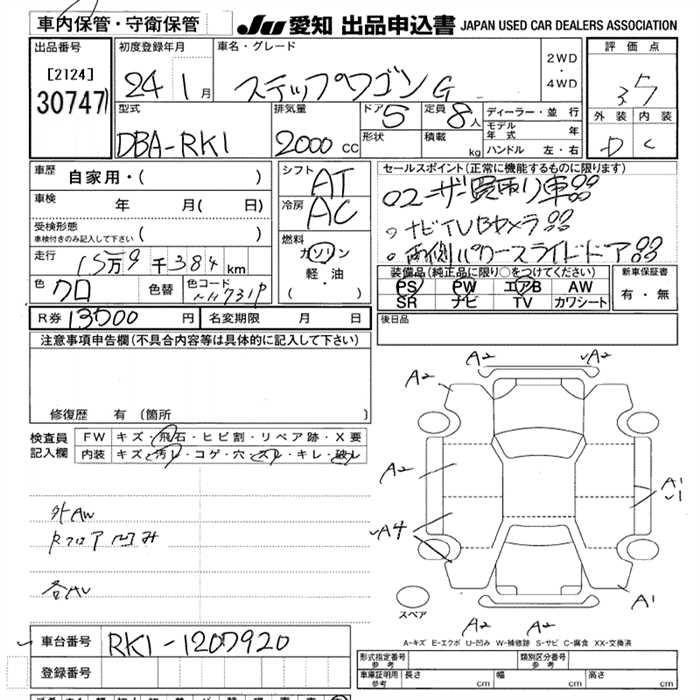 車内保管・守衛保管
JU 愛知 出品申込書 JAPAN USED CAR DEALERS ASSOCIATION
出品番号
[2124]
30747
初度登録年月
24 1 月
車名・グレード
ステップワゴン G
2WD
・
4WD
評価点
3.5
外装 内装
D C
型式
DBA-RK1
排気量
2000 cc
ドア 5
形状
定員 8 人
積載 kg
ディーラー・並行
モデル年式 年
ハンドル 左・右
車歴
自家用・( )
車検
年 月( 日)
受検形態
車検付きのみ記入して下さい ( )
走行
15万9千384km
色
クロ
色替
色コード
NH731P
シフト
AT
冷房
AC
燃料
ガソリン
軽・油
( ・ )
R券 13500 円
名変期限 月 日
セールスポイント(正常に機能するものに限ります)
ナビTVBカメラ
両側パワースライドドア
装備品(純正品に限り○をつけてください)
PS PW エアB AW
SR ナビ TV カワシート
新車保証書
有・無
後日品
注意事項申告欄(不具合内容等は具体的に記入して下さい)
修復歴 有(箇所 )
検査員
記入欄
FW キズ・飛石・ヒビ割・リペア跡・X要
内装 キズ・汚レ・コゲ・穴・スレ・キレ・破レ
外AW
凹み
A2
A2
A2
A2
A4
A1
U1
A1
A2
A2
スペア
A-キズ E-エクボ U-凹み W-補修跡 S-サビ C-腐食 XX-交換済
車台番号
RK1-1207920
登録番号
形式指定番号
参考
類別区分番号
参考
車庫証明用
参考
長さ cm
幅 cm
高さ cm